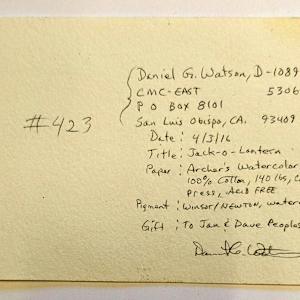 Daniel G. Watson, D-1089
CMC-EAST 5306
P O BOX 8101
San Luis Obispo, CA. 93409
#423
Date: 4/3/16
Title: Jack-o-Lantern
Paper: Archer's Watercolor
100% Cotton, 140 lbs, C
Press, Acid FREE
Pigment: Winsor/NEWTON, waterc
Gift: To Jan & Dave Peoples